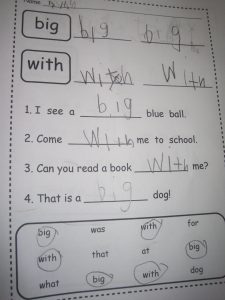 Name
big big big
with with with
1. I see a big blue ball.
2. Come with me to school.
3. Can you read a book with me?
4. That is a big dog!
big was with for
with that at big
what big with dog